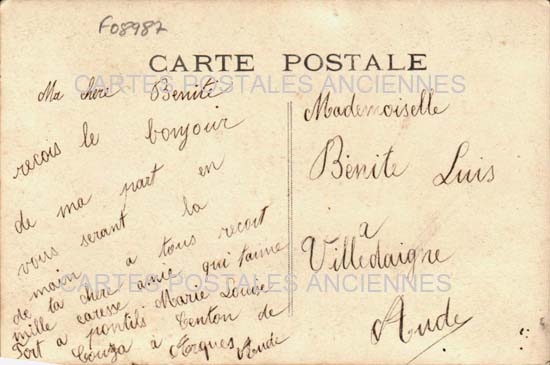 F08987
CARTE POSTALE
CARTES POSTALES ANCIENNES
Ma chere Benite
recois le bonjour
de ma part en
vous serant la
de main a tous recoit
mille caresse amie qui t'aime
ta chere
Fort a pontils Marie Louise
Couza à Centon de
Arques Aude
Mademoiselle
Bènite Luis
a
Villedaigne
Aude
CARTES POSTALES ANCIENNES